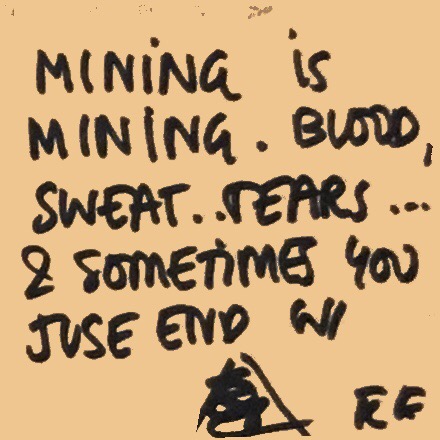 MINING is
MINING. BLOOD,
SWEAT..TEARS...
& SOMETIMES YOU
JUSE END W/